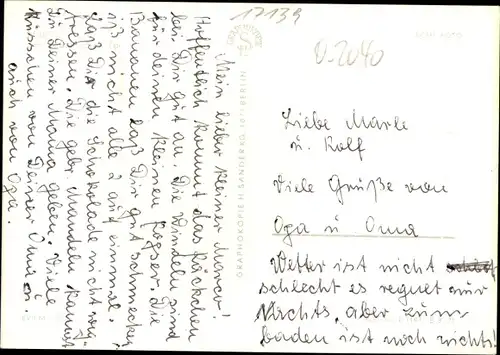 17139
0-2040
Mein lieber kleiner Marco!
Hoffentlich kommt das Päckchen
bei Dir gut an. Die Windeln sind
für deinen kleinen Die
Bananen laß Dir gut schmecken
iß nicht alle 2 auf einmal.
Laß Dir die Schokolade nicht weg
fressen. Die gebr. Mandeln kannst
Du Deiner Mama geben. Viele
Küsschen von Deiner Oma u.
auch von Opa.
GRAPHOKOPIE H. SANDER KG · 1 BERLIN
Liebe Marle
u. Rolf
Viele Grüße von
Opa u Oma
Wetter ist nicht
schlecht es regnet nur
Nachts, aber zum
baden ist noch nichts!